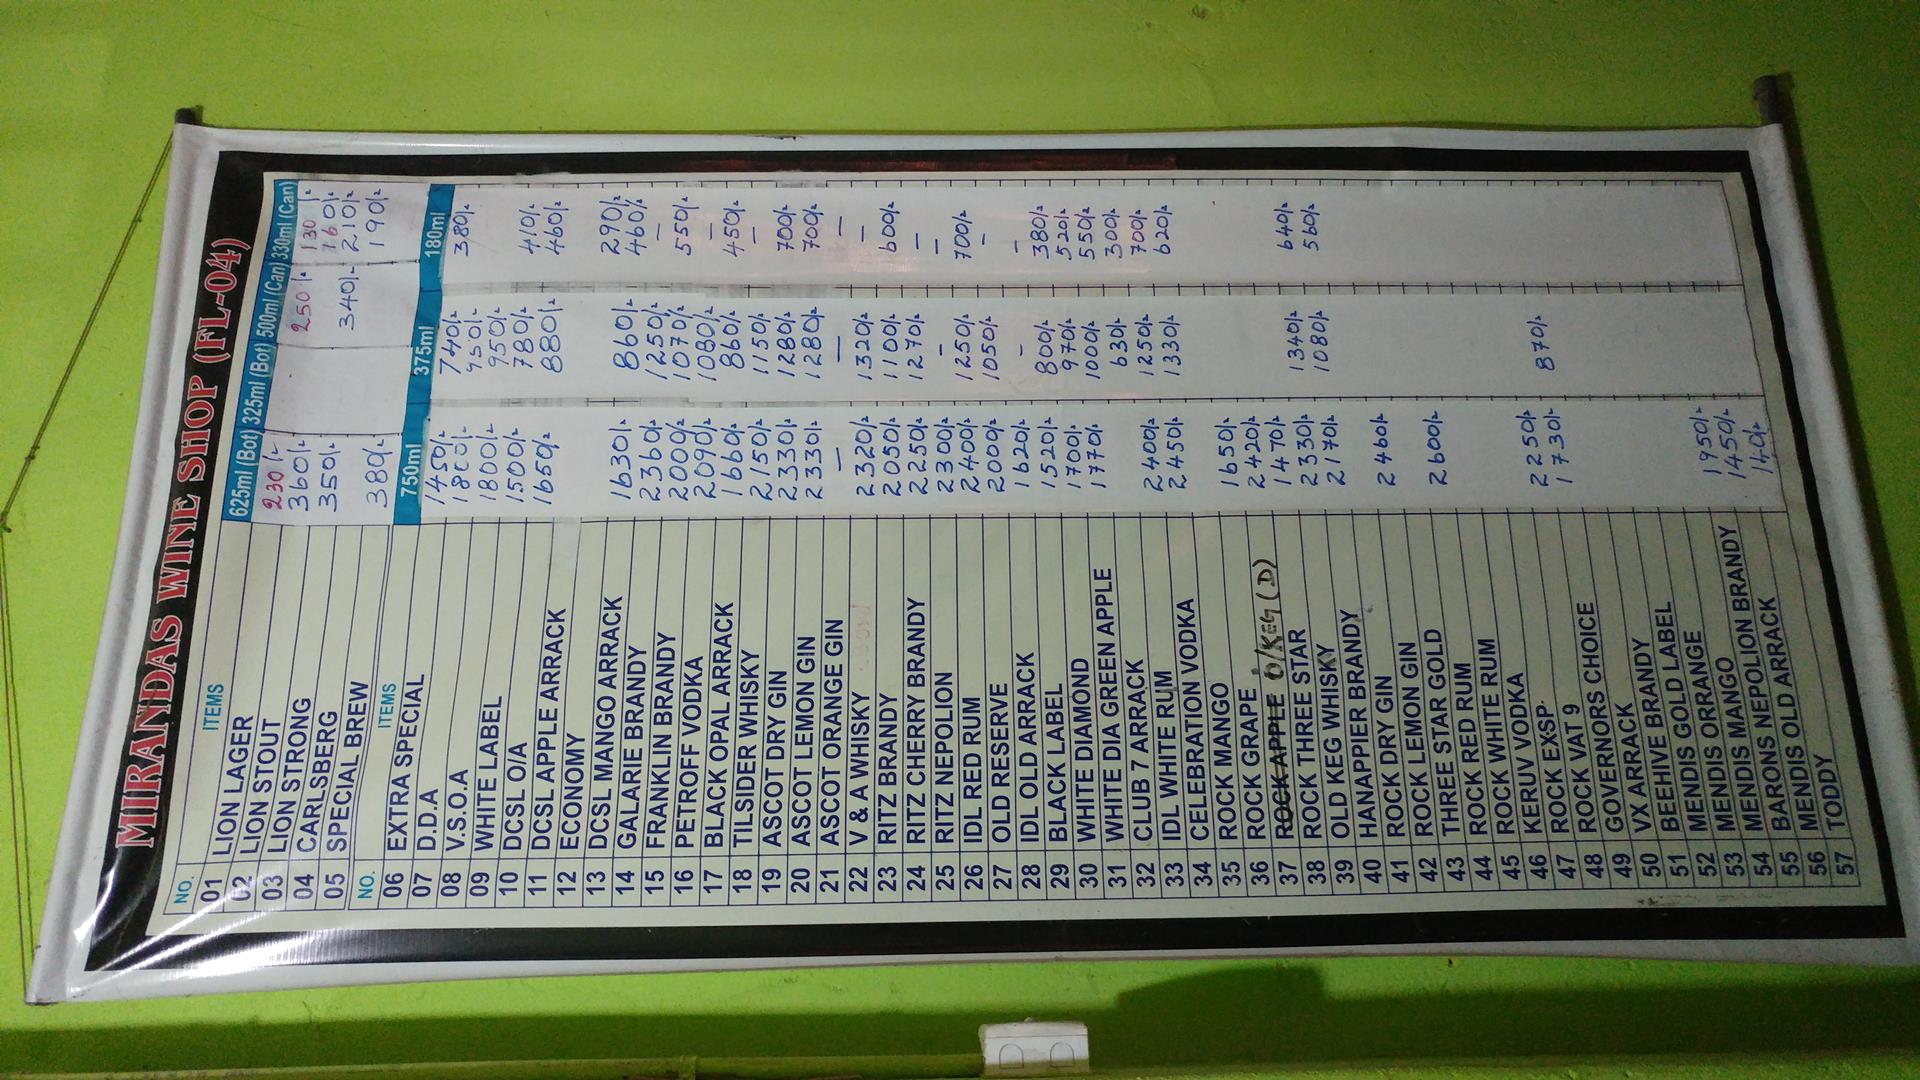 MIRANDAS WINE SHOP (FL-04)
NO. ITEMS 625ml (Bot) 325ml (Bot) 500ml (Can) 330ml (Can)
01 LION LAGER 230/- 250/- 130/-
02 LION STOUT 360/- 160/-
03 LION STRONG 350/- 340/- 210/-
04 CARLSBERG 190/-
05 SPECIAL BREW 380/-
NO. ITEMS 750ml 375ml 180ml
06 EXTRA SPECIAL 1450/- 740/- 380/-
07 D.D.A 1800/- 950/-
08 V.S.O.A 1800/- 950/-
09 WHITE LABEL 1500/- 780/- 410/-
10 DCSL O/A 1650/- 880/- 460/-
11 DCSL APPLE ARRACK
12 ECONOMY 290/-
13 DCSL MANGO ARRACK 1630/- 860/- 460/-
14 GALARIE BRANDY 2360/- 1250/- -
15 FRANKLIN BRANDY 2000/- 1070/- 550/-
16 PETROFF VODKA 2090/- 1080/- -
17 BLACK OPAL ARRACK 1660/- 860/- 450/-
18 TILSIDER WHISKY 2150/- 1150/- -
19 ASCOT DRY GIN 2330/- 1280/- 700/-
20 ASCOT LEMON GIN 2330/- 1280/- 700/-
21 ASCOT ORANGE GIN - - -
22 V & A WHISKY 2320/- 1320/- -
23 RITZ BRANDY 2050/- 1100/- 600/-
24 RITZ CHERRY BRANDY 2250/- 1270/- -
25 RITZ NEPOLION 2300/- - -
26 IDL RED RUM 2400/- 1250/- 700/-
27 OLD RESERVE 2000/- 1050/- -
28 IDL OLD ARRACK 1620/- - -
29 BLACK LABEL 1520/- 800/- 380/-
30 WHITE DIAMOND 1700/- 970/- 520/-
31 WHITE DIA GREEN APPLE 1770/- 1000/- 550/-
32 CLUB 7 ARRACK 630/- 300/-
33 IDL WHITE RUM 2400/- 1250/- 700/-
34 CELEBRATION VODKA 2450/- 1330/- 620/-
35 ROCK MANGO
36 ROCK GRAPE 1650/-
37 ROCK APPLE O/KEG (D) 2420/-
38 ROCK THREE STAR 1470/-
39 OLD KEG WHISKY 2330/- 1340/- 640/-
40 HANAPPIER BRANDY 2170/- 1080/- 560/-
41 ROCK DRY GIN
42 ROCK LEMON GIN 2460/-
43 THREE STAR GOLD
44 ROCK RED RUM 2600/-
45 ROCK WHITE RUM
46 KERUV VODKA
47 ROCK EXSP.
48 ROCK VAT 9 2250/-
49 GOVERNORS CHOICE 1730/- 870/-
50 VX ARRACK
51 BEEHIVE BRANDY
52 MENDIS GOLD LABEL
53 MENDIS ORRANGE
54 MENDIS MANGO
55 BARONS NEPOLION BRANDY 1950/-
56 MENDIS OLD ARRACK 1450/-
57 TODDY 140/-